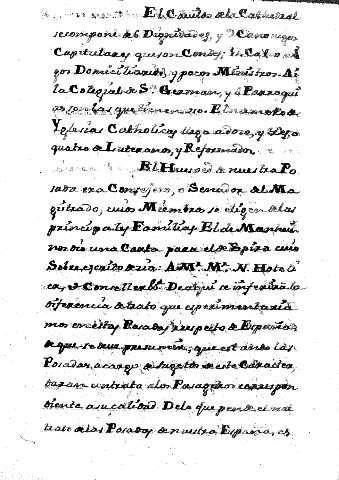 El Cavildo de la Cathedral
se compone de 6 Dignidades, y 9 Canonigos
Capitulares, que son Condes;
gos Domiciliarios, y pocos Ministros. Ai
la Colegial de Sn. German, y 6 Parroquias
son las que tienen uso. El numero de
Yglesias Catholicas llega a doce, y el de
quatro de Luteranos, y Reformados.
El Huesped de nuestra Po
sada era Consejero, o Senador del Ma
gistrado, cuios Miembros se eligen de las
principales Familias. El de Manhei
nos dio una Carta para el de Spira cuio
Sobrescrito decia: A Mr. Mr. N. Hoteli
er, & Conseller &c. De aqui se inferirá la
diferencia de trato que esperimentaria
mos en estas Posadas respecto de España
de que se deve presumir, que estando las
Posadas a cargo de sugetos de este Caracter
daran un trato a los Pasageros correspon
diente a su calidad. De lo que pende el mal
trato de las Posadas de nuestra España, es